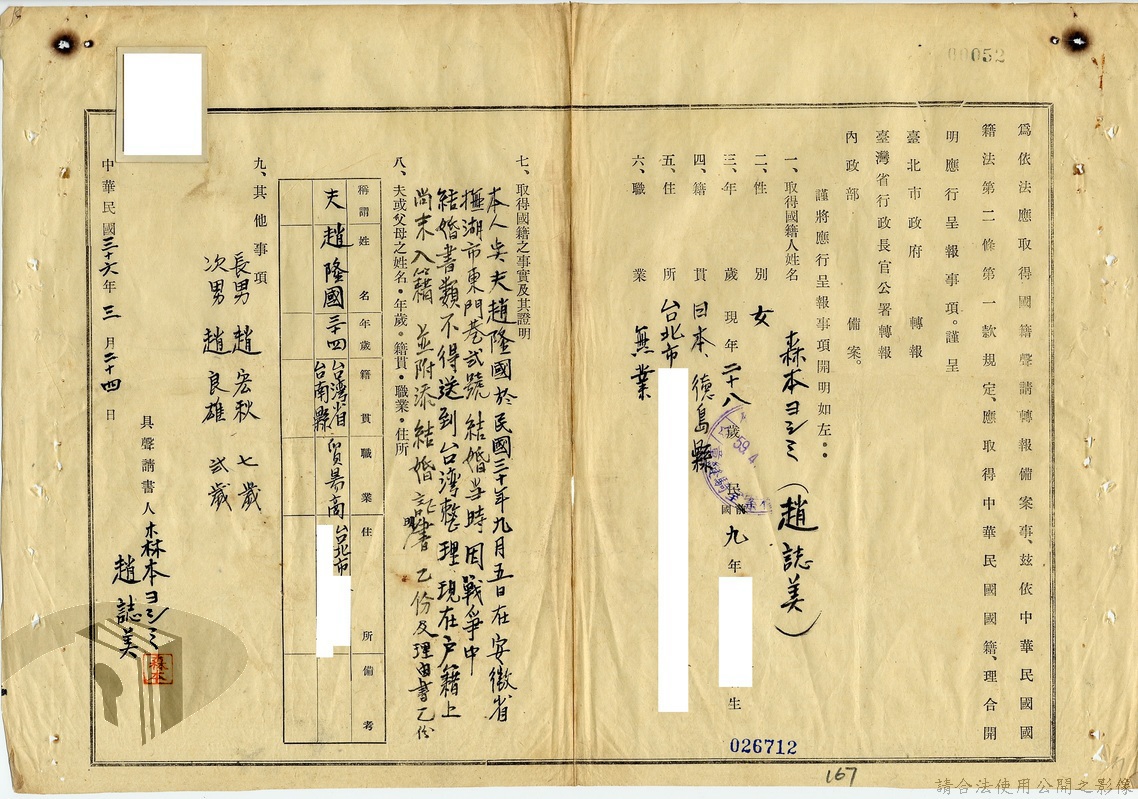 00052
為依法應取得國籍聲請轉報備案事、茲依中華民國國
籍法第二條第一款規定、應取得中華民國國籍、理合開
明應行呈報事項。謹呈
臺北市政府 轉報
臺灣省行政長官公署轉報
內政部 備案。
謹將應行呈報事項開明如左：
一、取得國籍人姓名 森本ヨシミ（趙誌美）
二、性別 女
三、年歲 現年二十八歲 民國前九年 生
四、籍貫 日本、德島縣
五、住所 台北市
六、職業 無業
七、取得國籍之事實及其證明
本人与夫趙隆國於民國三十年九月五日在安徽省
蕪湖市東門巷弍號結婚当時因戰爭中
結婚書類不得送到台湾整理現在戶籍上
尚未入籍 並附添結婚証明書乙份及理由書乙份
八、夫或父母之姓名・年歲・籍貫・職業・住所
稱謂 姓名 年歲 籍貫 職業 住所 備考
夫 趙隆國 三十四 台湾省台南縣 貿易商 台北市
九、其他事項
長男 趙宏秋 七歲
次男 趙良雄 弍歲
具聲請書人 森本ヨシミ
趙誌美
森本
中華民國三十六年三月二十四日
026712
167
請合法使用公開之影像